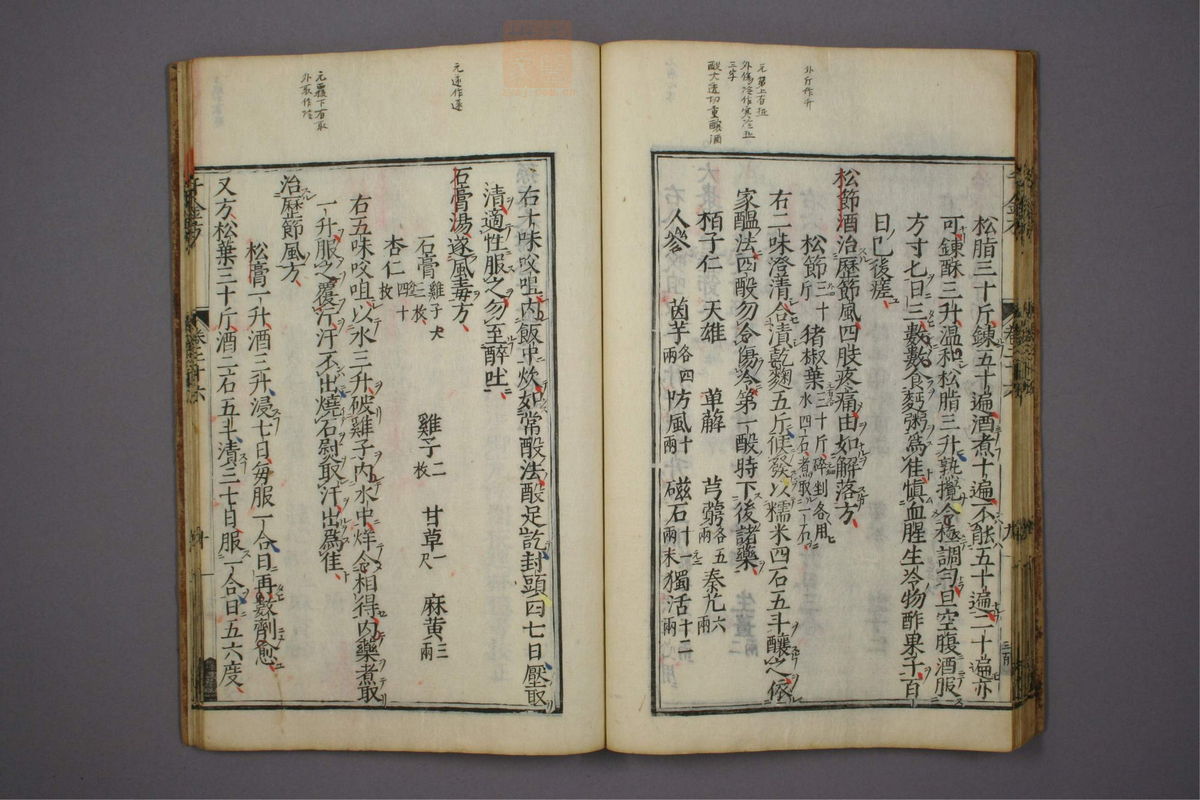 松脂三十斤鍊五十遍酒煮十遍不能五十遍二十遍亦
可鍊酥三升溫和松脂三升熟攪令極調勻旦空腹酒服
方寸匕日三數數食麪粥爲佳愼血腥生冷物酢果子百
日已後瘥
松節酒治歷節風四肢疼痛由如解落方
松節三十斤 猪椒葉三十斤碎剉各用水四石煮取一石
右二味澄清合漬乾麴五斤候發以糯米四石五斗釀之依
家醞法四酘勿令傷冷第一酘時下後諸藥
栢子仁 天雄 萆薢 芎藭各五兩 秦艽六兩
人參 茵芋各四兩 防風十兩 磁石十一兩末 獨活十二兩
右十味㕮咀內飯中炊如常酘法酘足訖封頭四七日壓取
清適性服之勿至醉吐
石膏湯遂風毒方
石膏雞子大三枚 雞子二枚 甘草一尺 麻黃三兩
杏仁四十枚
右五味㕮咀以水三升破雞子內水中烊令相得內藥煮取
一升服之覆汗汗不出燒石熨取汗出爲佳
治歷節風方
松膏一升酒三升浸七日每服一合日再數劑愈
又方松葉三十斤酒二石五斗漬三七日服一合日五六度
外斤作升
元第上有拯
三字
酘大透切重釀酒
元遂作逐
元覆下有取
千金方
卷二十六